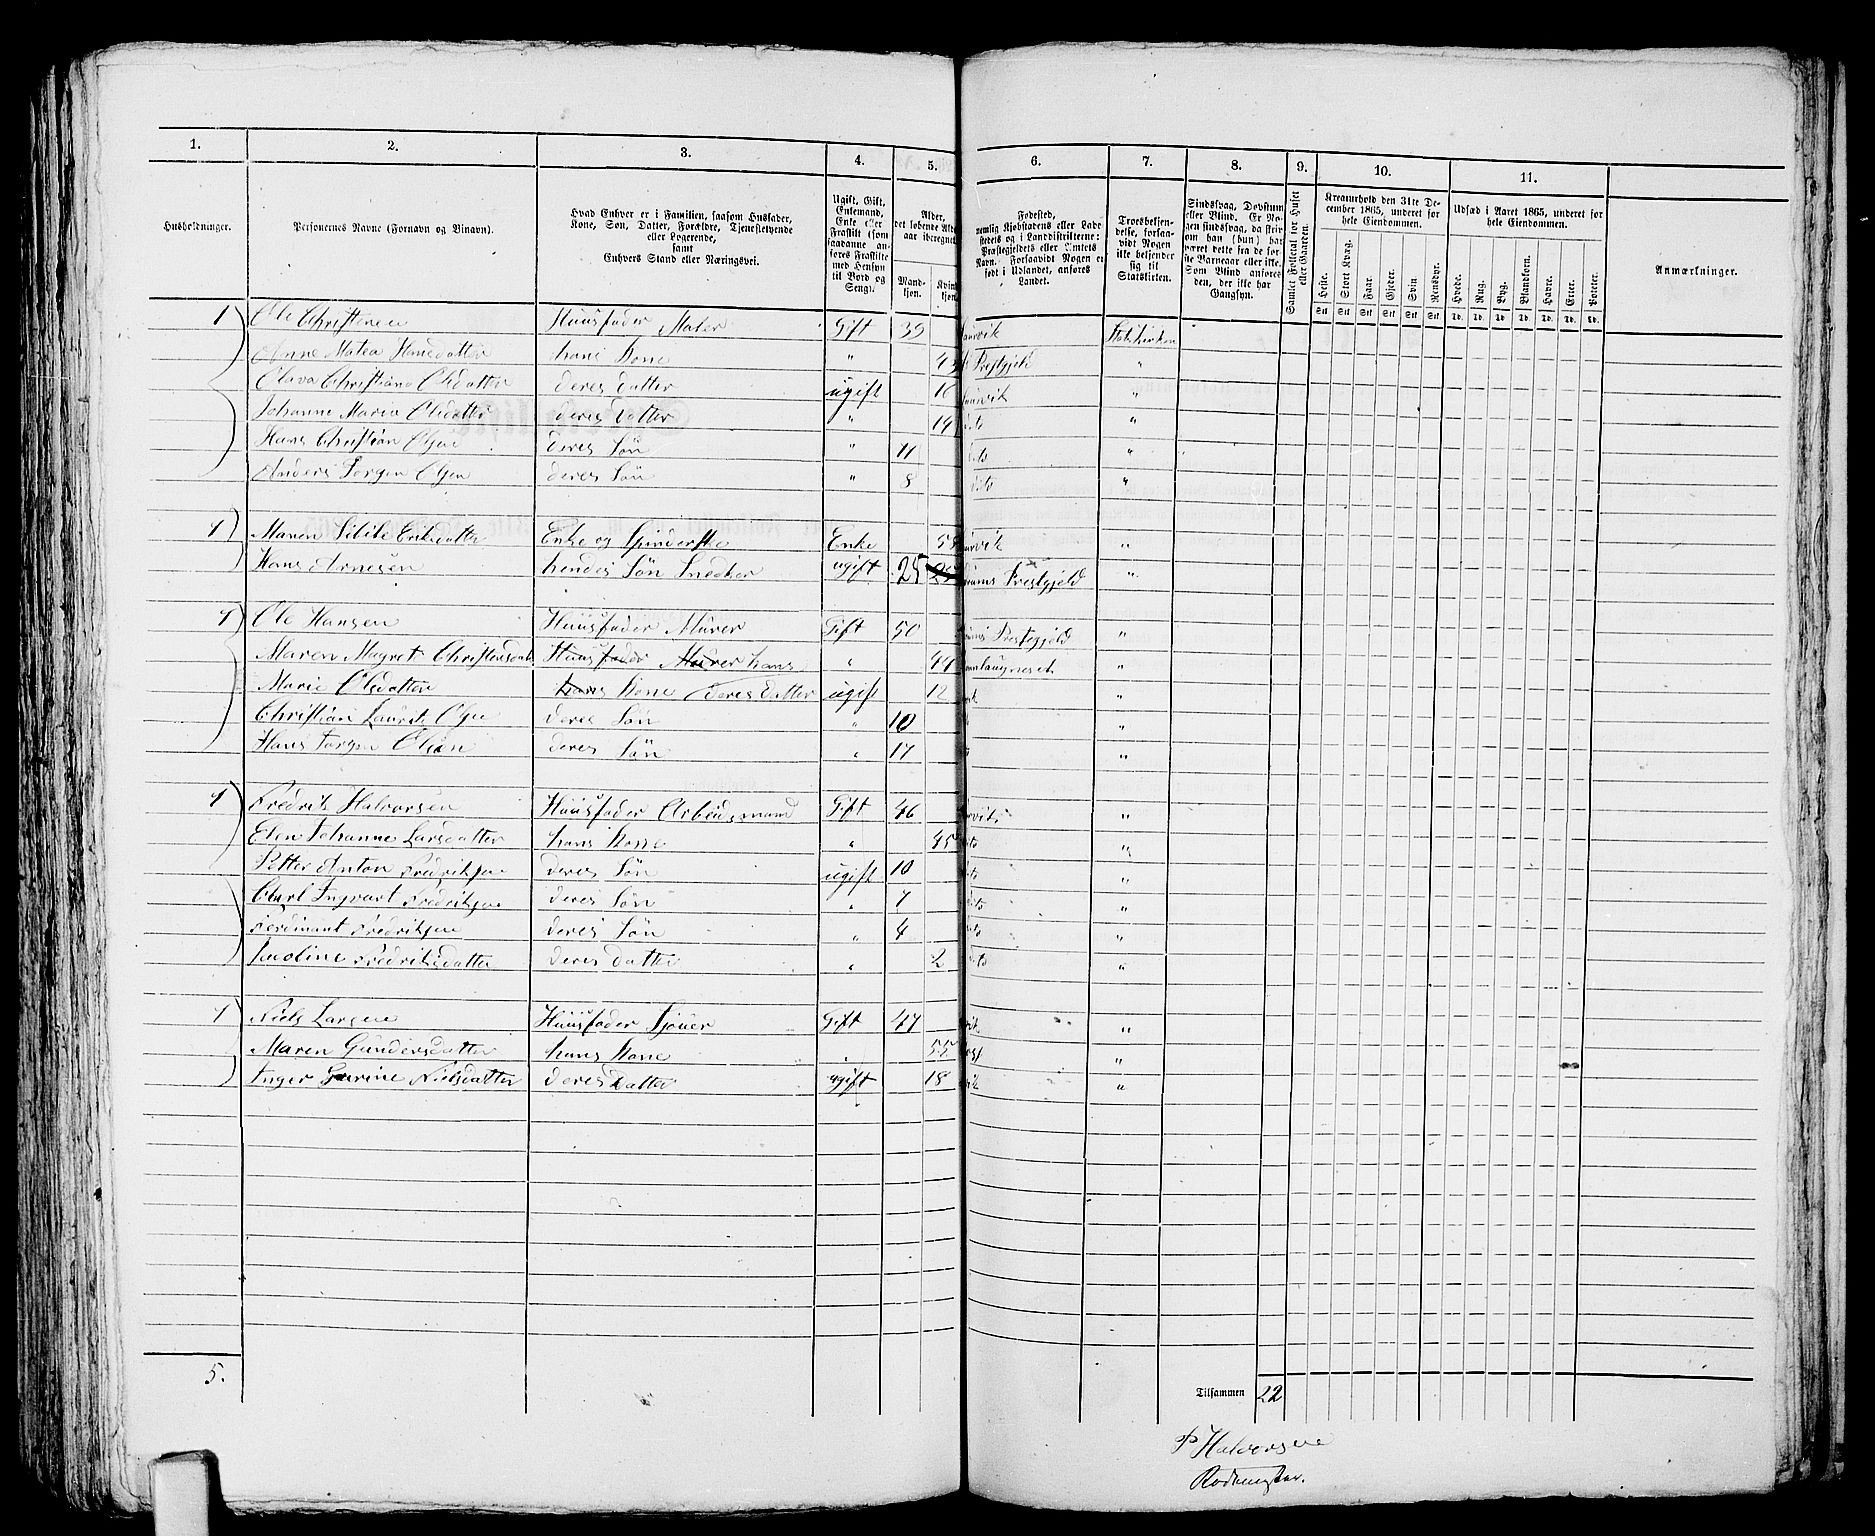 1. 2. 3. 4. 5. 6. 7. 8. 9. 10. 11.
Husholdninger.
Personernes Navne (Fornavn og Binavn).
Hvad Enhver er i Familien, saasom Husfader, Kone, Søn, Datter, Forældre, Tjenestetyende eller Logerende, samt Enhvers Stand eller Næringsvei.
Ugift, Gift, Enkemand, Enke eller Fraskilt (som saadanne anføres Fraskilte med Hensyn til Bord og Seng).
Alder, det løbende Alders aar iberegnet.
Mandkjøn. Kvindkjøn.
Fødested, nemlig Kjøbstadens eller Ladestedets og i Landdistrikterne: Præstegjeldets eller Amtets Navn. Forsaavidt Nogen er født i Udlandet, anføres Landet.
Troesbekjendelse, forsaavidt Nogen ikke bekjender sig til Statskirken.
Sindssvag, Døvstum eller Blind. Er Nogen sindssvag, da skrives om han (hun) har været dette fra de første Barneaar eller ikke. Som Blind anføres den, der ikke har Gangsyn.
Samlet Folketal for Huset eller Gaarden.
Kreaturhold den 31te December 1865, underet for hele Eiendommen.
Heste. Stort Kvæg. Faar. Gjeder. Svin. Rensdyr.
Stk Stk Stk Stk Stk Stk
Udsæd i Aaret 1865, underet for hele Eiendommen.
Hvede. Rug. Byg. Blandkorn. Havre. Erter. Poteter.
Td. Td. Td. Td. Td. Td. Td.
Anmærkninger.
1 Ole Christensen Huusfader Maler Gift 39 Laurvik Statskirken
Anne Matea Hansdatter hans Kone " 43 Prestgjeld "
Olava Christiane Olsdatter deres datter ugift 16 Laurvik "
Johanne Maria Olsdatter deres datter " 14 dets "
Hans Christian Olsen deres Søn " 11 dets "
Anders Jørgen Olsen deres Søn " 8 dets "
1 Maren Sibile Eriksdatter Enke og Spinderske Enke 58 urvik "
Hans Arnesen hendes Søn Snedker ugift 25 25 Prestgjeld "
1 Ole Hansen Huusfader Murer Gift 50 Prestegjeld "
Maren Magret Christensdatt Huusfader Murer hans " 44 "
Marie Olsdatter hans Kone deres datter ugift 12 "
Christian Laurits Olsen deres Søn " 10 "
Hans Jørgen Olsen deres Søn " 17 "
1 Fredrik Halvorsen Huusfader Arbeidsmand Gift 46 "
Elen Johanne Larsdatter hans Kone " 45 "
Petter Anton Fredriksen deres Søn ugift 10 "
Carl Ingvart Fredriksen deres Søn " 7 "
Ferdinant Fredriksen deres Søn " 4 "
Fredriksdatter deres datter " 2 "
1 Niels Larsen Huusfader Sjouer Gift 47 vik "
Maren Gundersdatter hans Kone " 55 "
Inger Nielsdatter deres Datter ugift 18 vik "
5.
Tilsammen 22
P Halvorsen
Rodemester.